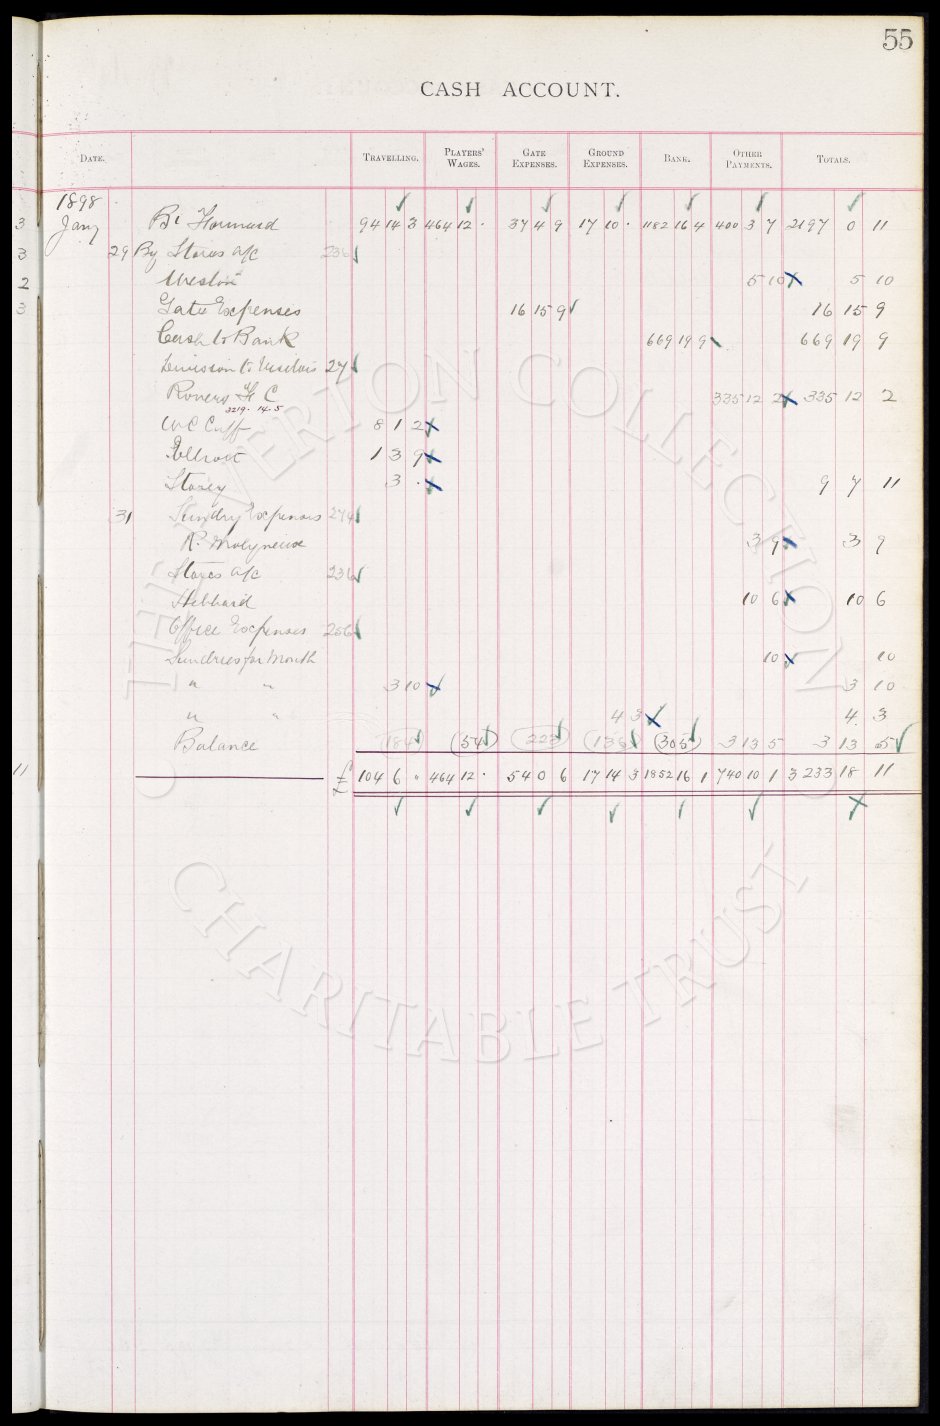 55
CASH ACCOUNT.
DATE. TRAVELLING. PLAYERS' WAGES. GATE EXPENSES. GROUND EXPENSES. BANK. OTHER PAYMENTS. TOTALS.
1898
3 Jany Bt Forward 94 14 3 464 12 . 37 4 9 17 10 . 1182 16 4 400 3 7 2197 0 11
3 29 By Stores a/c 236
2 Weston 5 10 5 10
3 Gate Expenses 16 15 9 16 15 9
Cash to Bank 669 19 9 669 19 9
Division to Visitors 27
Rovers F C 335 12 2 335 12 2
3219 . 14 . 5
W C Cuff 8 1 2
Elliott 1 3 9
Storey 3 . 9 7 11
31 Sundry Expenses 274
R. Molyneux 3 9 3 9
Stores a/c 236
Stebbard 10 6 10 6
Office Expenses 256
Sundries for Month 10 10
" " 3 10 3 10
" " 4 3 4 3
Balance 184 54 223 136 305 3 13 5 3 13 5
11 £ 104 6 " 464 12 . 54 0 6 17 14 3 1852 16 1 740 10 1 3233 18 11
THE EVERTON COLLECTION
CHARITABLE TRUST